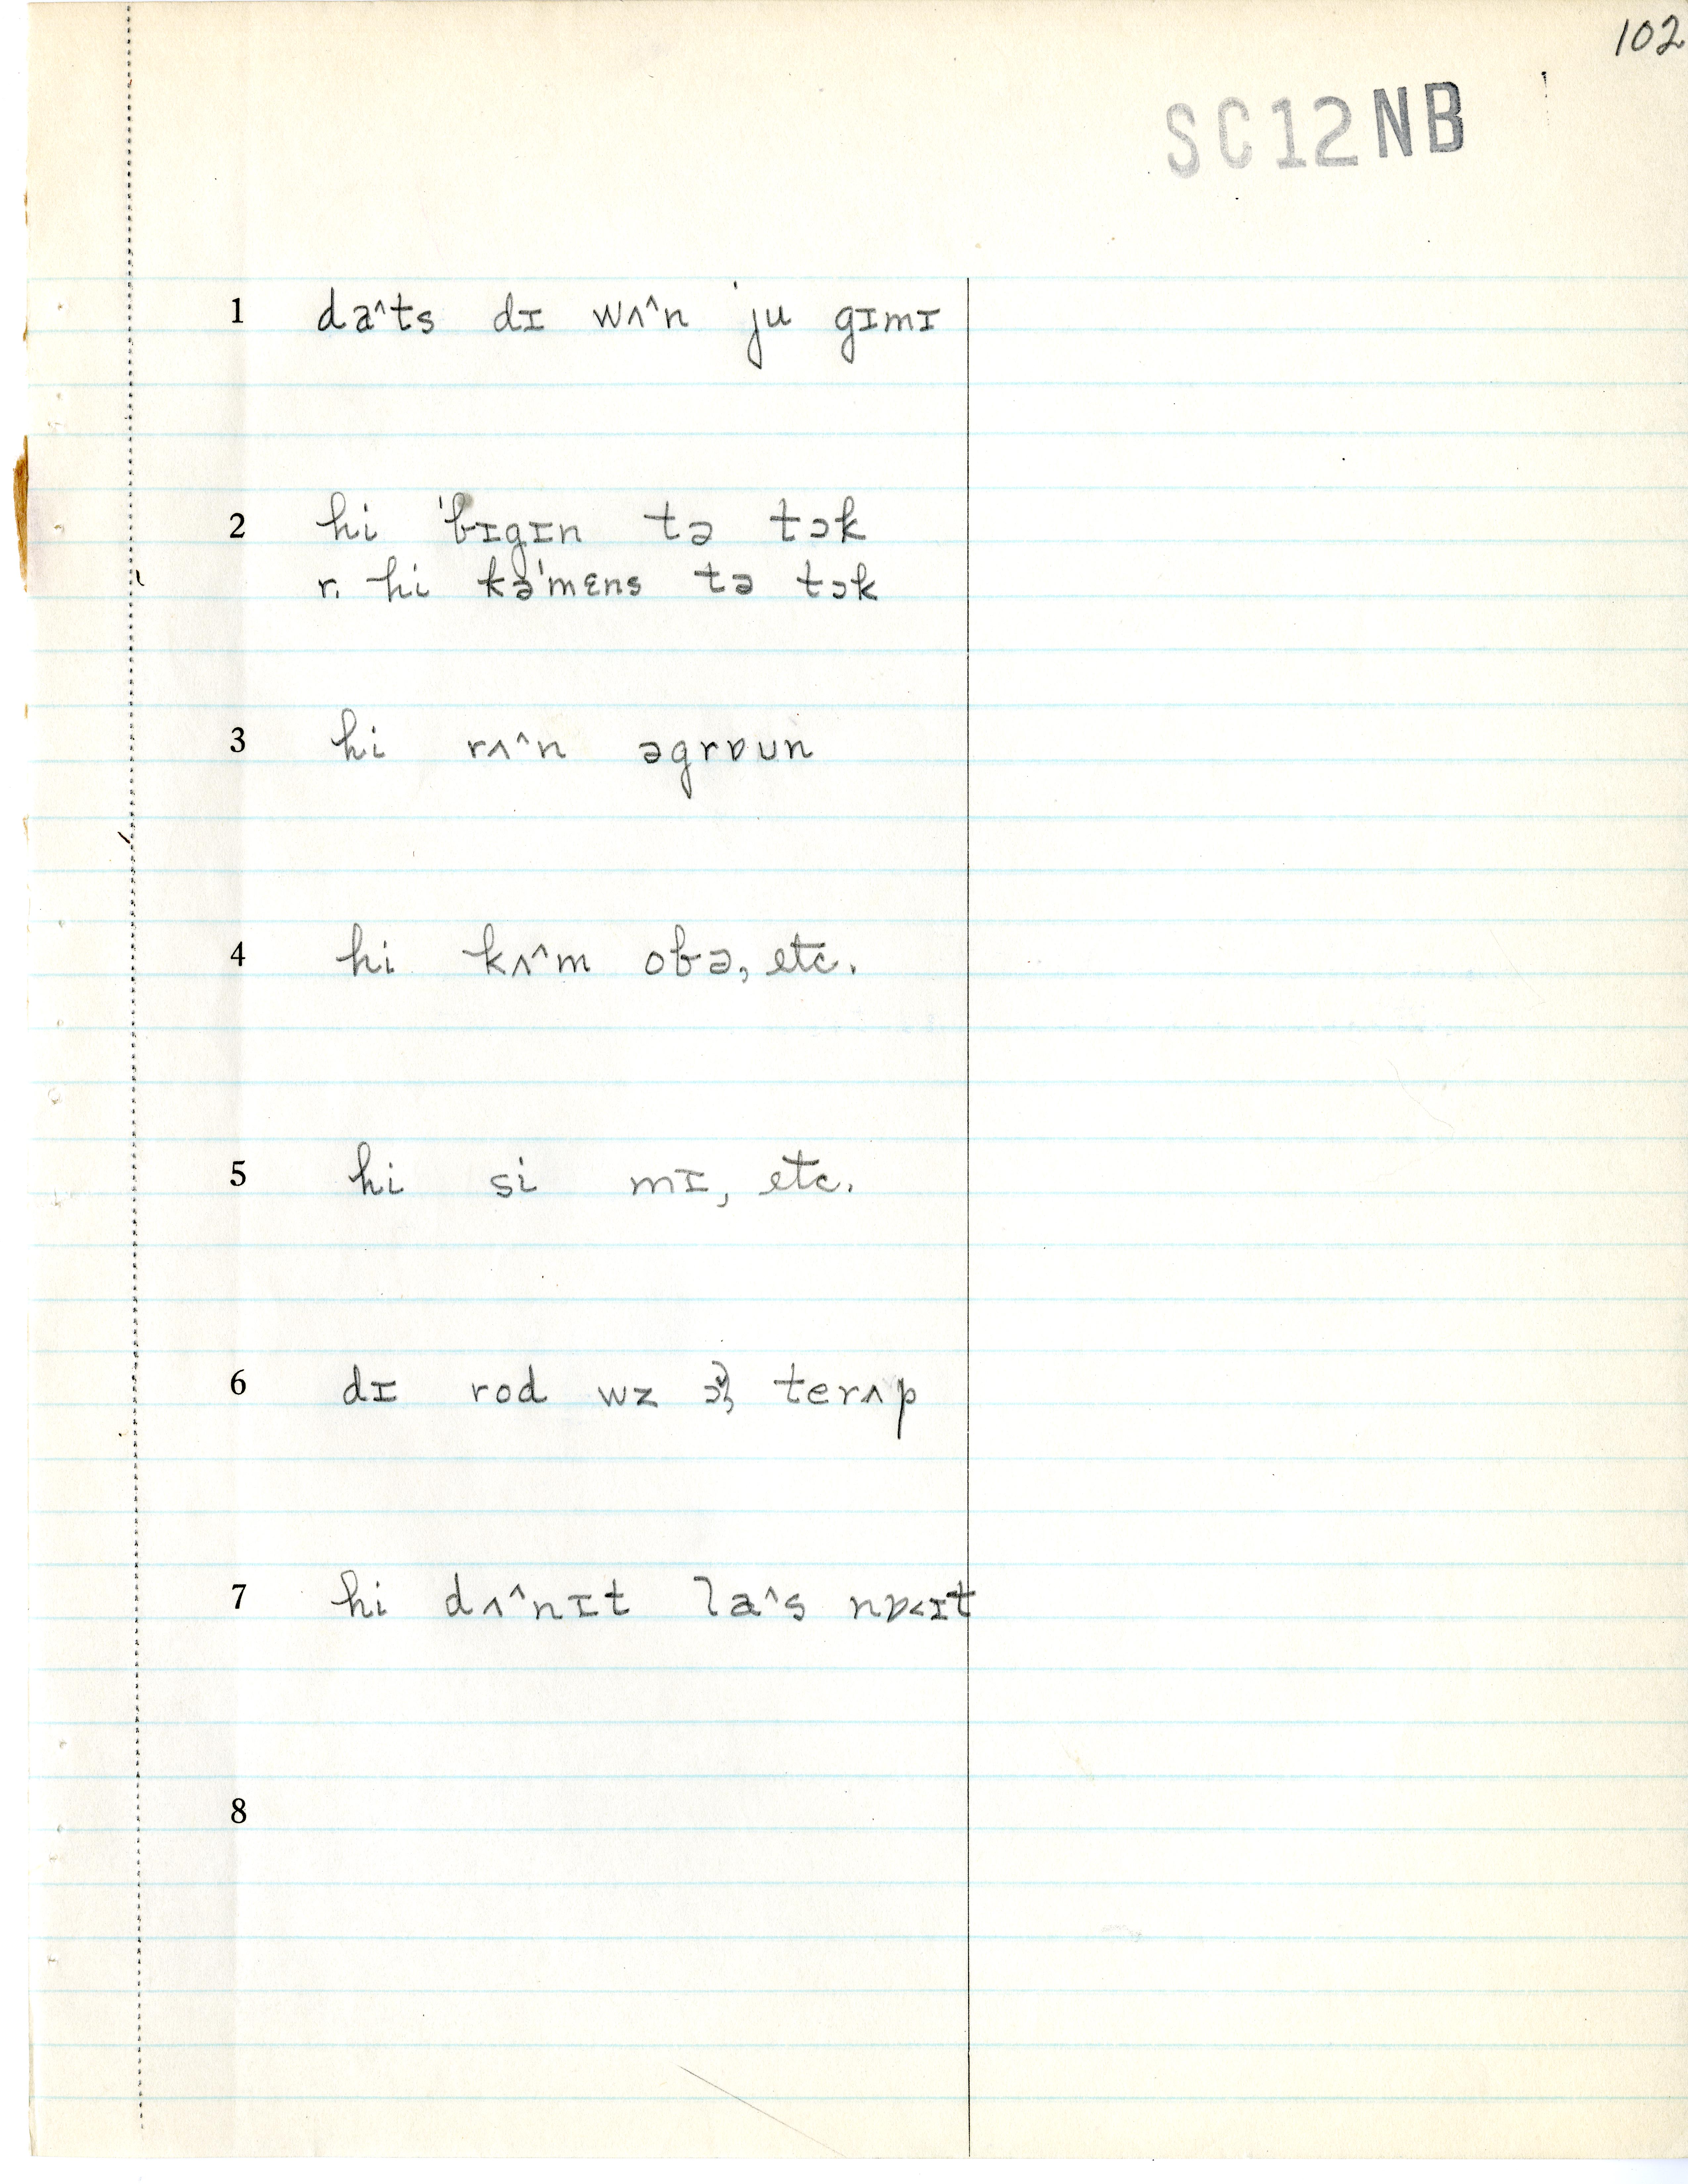 102
SC12NB
1 da^ts dɪ wʌ^n ˈju gɪmɪ
2 hi ˈbɪgɪn tə tɔk
r. hi kəˈmɛns tə tɔk
3 hi rʌ^n əgrɒun
4 hi kʌ^m obə, etc.
5 hi si mɪ, etc.
6 dɪ rod wz terʌp
7 hi dʌ^nɪt la^s nɒ<ɪt
8